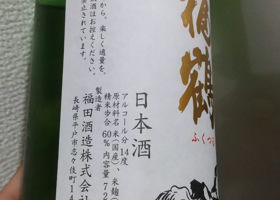 福鶴
ふくつる
日本酒
アルコール分 14度
原材料名 米(国産)、米麹
精米歩合 60% 内容量 72
製造者
福田酒造株式会
長崎県平戸市志々伎町14
から、楽しく適量を。
酒はお控えください。
止されています。